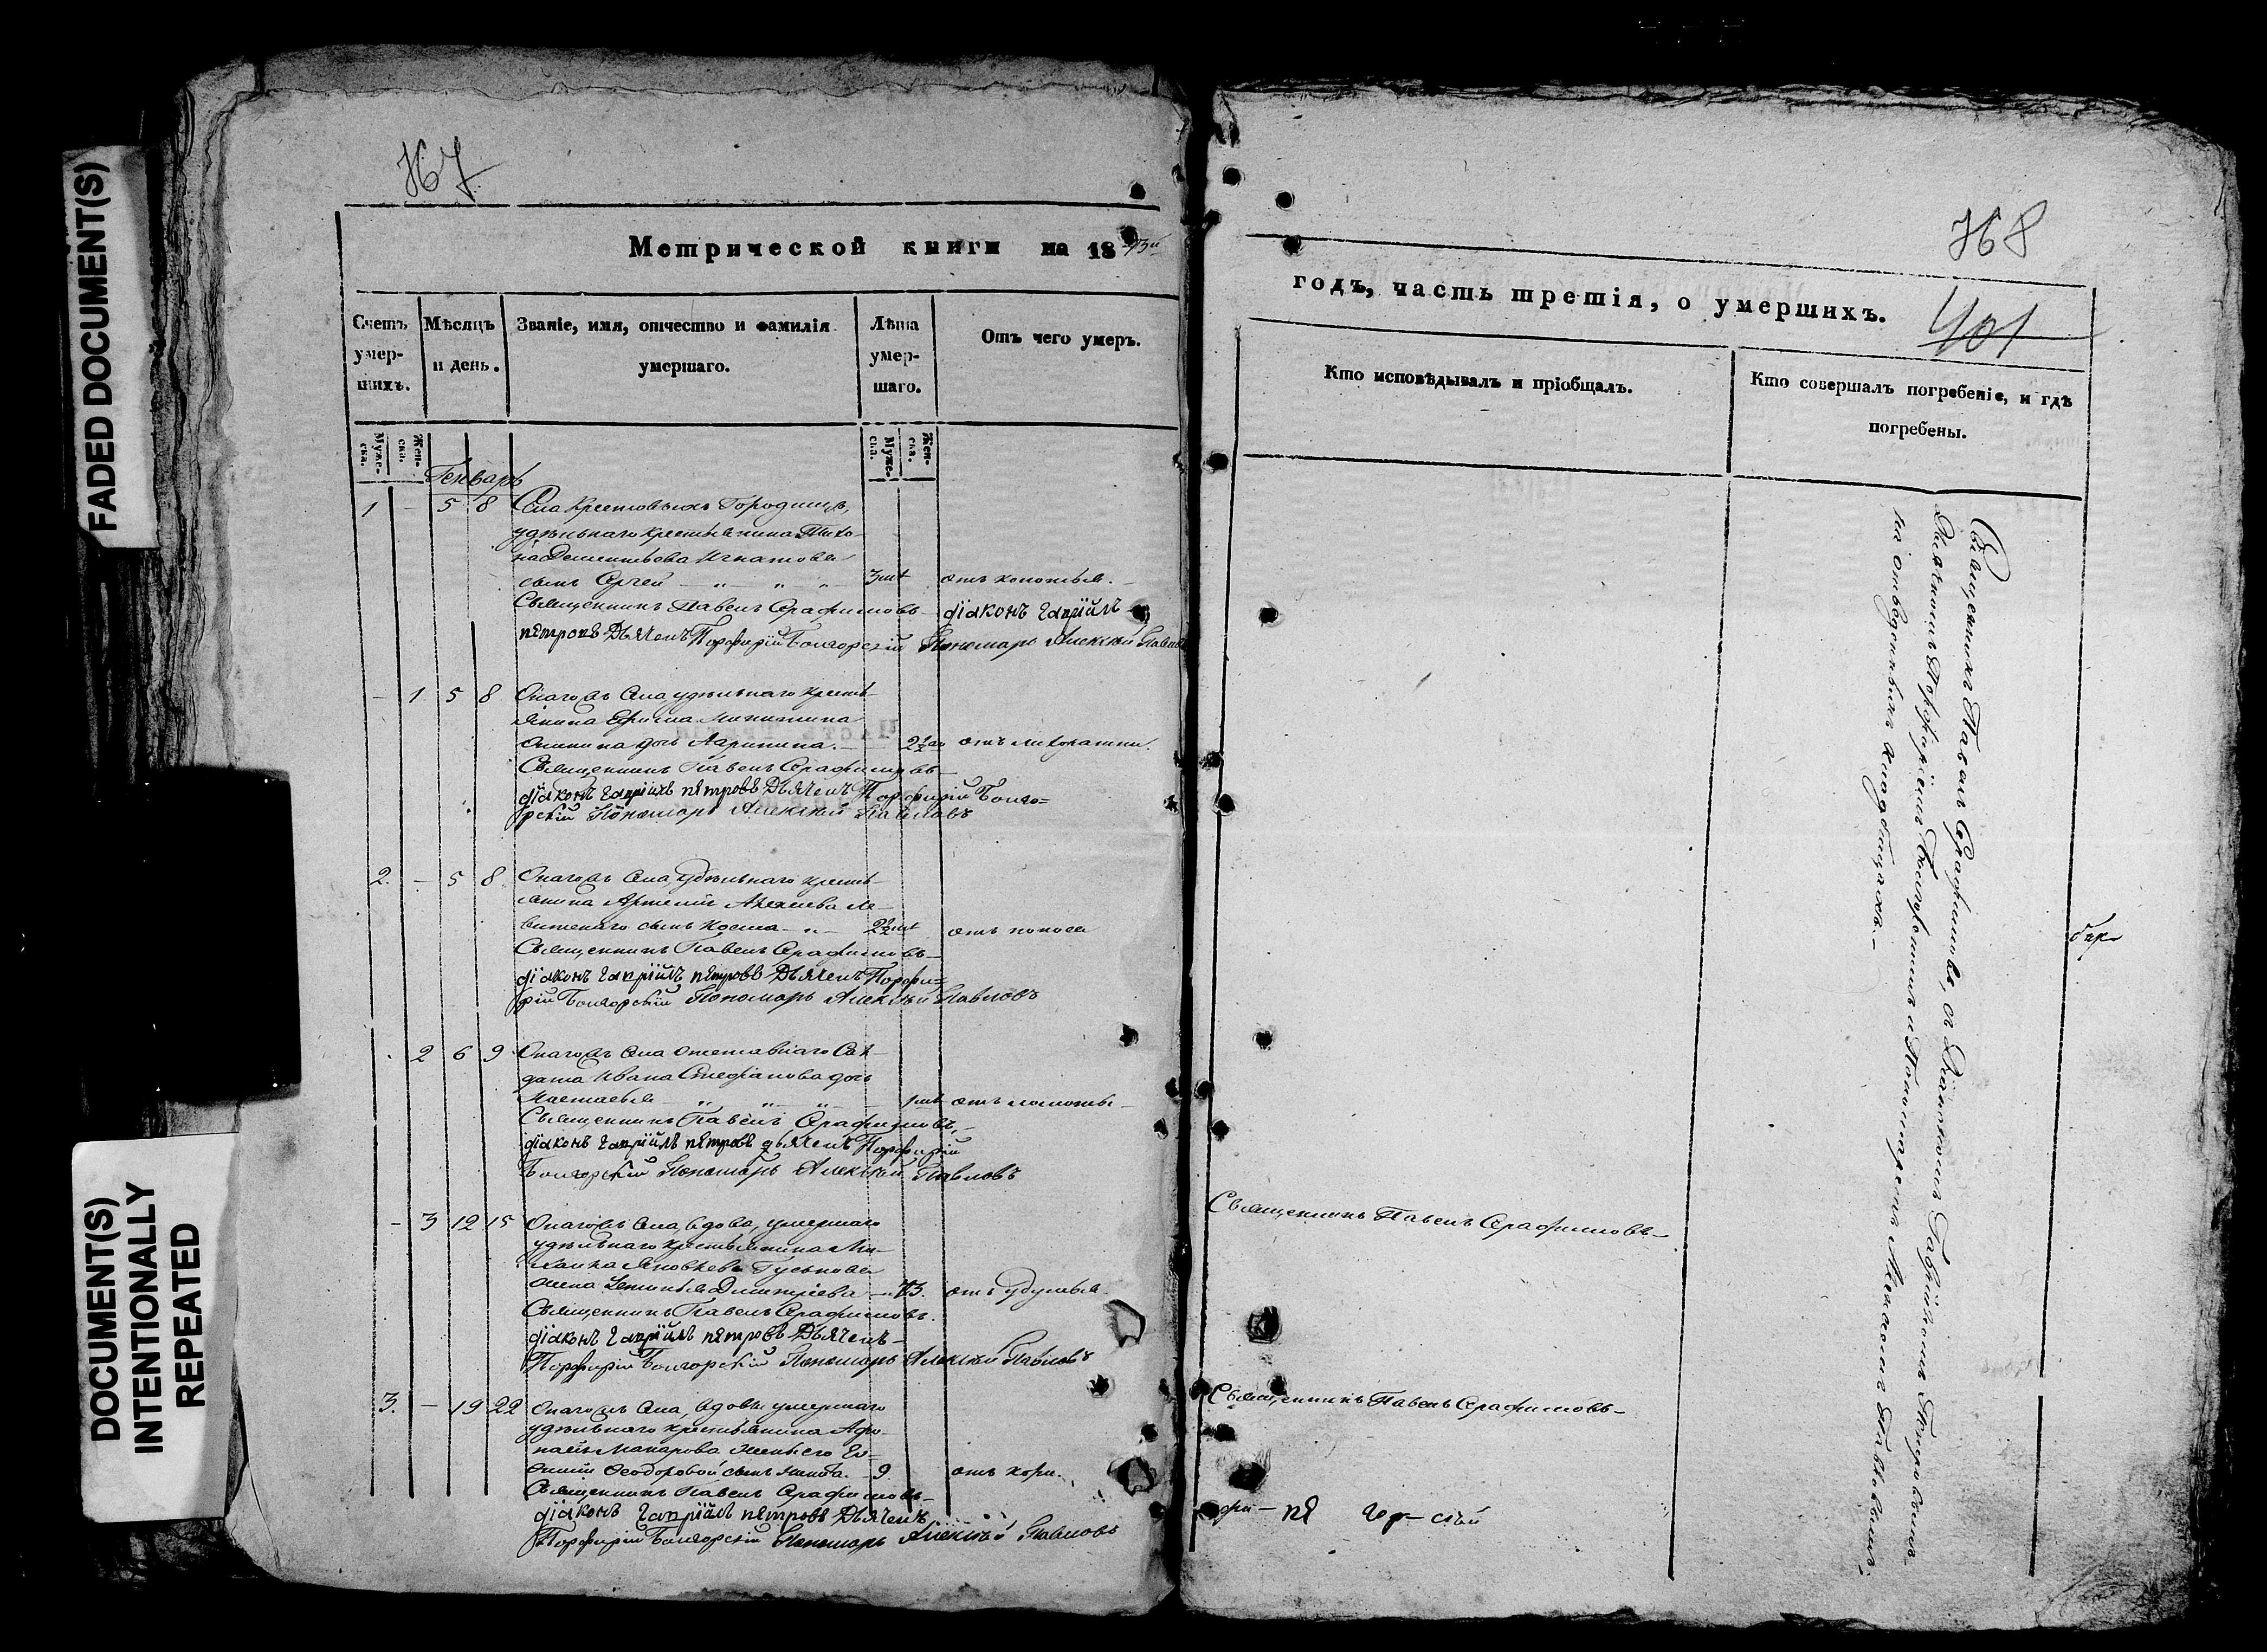 FADED DOCUMENT(S)
DOCUMENT(S)
INTENTIONALLY
REPEATED
Метрической книги на 18
Счетъ умер-шихъ.
Мѣсяцъ и день.
Званіе, имя, отчество и фамилія умершаго.
Лѣта умер-шаго.
Отъ чего умеръ.
Муже-ска.
Жен-ска.
Муже-ска.
Жен-ска.
Генварь
1 - 5 8 Села Городищъ,
удѣльнаго крестьянина Тихо-
на Дементьева Игнатова
сынъ Сергей 3 отъ
Священникъ Павелъ Серафимовъ діаконъ Гавріилъ
петровъ Дьячекъ Порфирій Болгорскій Пономарь Алексѣй Павловъ
- 1 5 8 Онагожъ села удѣльнаго кресть-
янина Ефима Никитина
дочь 2½ отъ
Священникъ Павелъ Серафимовъ
діаконъ Гавріилъ петровъ Дьячекъ Порфирій Болго=
рскій Пономарь Алексѣй Павловъ
2. - 5 8 Онагожъ села, удѣльнаго кресть-
янина Артемія Алексеева
сынъ Косма 2½ отъ поноса
Священникъ Павелъ Серафимовъ
діаконъ Гавріилъ петровъ Дьячекъ Порфи=
рій Болгорскій Пономарь Алексѣй Павловъ
2 6 9 Онагожъ села отставнаго Сол-
дата Ивана Стефанова дочь
1 отъ
Священникъ Павелъ Серафимовъ
діаконъ Гавріилъ петровъ дьячекъ Порфирій
Болгорскій Пономарь Алексѣй Павловъ
- 3 12 15 Онагожъ села, вдова, умершаго
удѣльнаго крестьянина Ми-
хаила Яковлева Гуськова
жена Димитріева 73. отъ удушья
Священникъ Павелъ Серафимовъ.
діаконъ Гавріилъ петровъ Дьячекъ
Порфирій Болгорскій Пономарь Алексѣй Павловъ
3. - 19 22 Онагожъ села, вдовы умершаго
удѣльнаго крестьянина Афо-
насья Макарова жены его Ев-
Феодоровой сынъ Никита. 9 отъ кори.
Священникъ Павелъ Серафимовъ
діаконъ Гавріилъ петровъ Дьячекъ
Порфирій Болгорскій Пономарь Алексѣй Павловъ
годъ, часть третія, о умершихъ.
401
Кто исповѣдывалъ и пріобщалъ.
Кто совершалъ погребеніе, и гдѣ погребены.
Священникъ Павелъ Серафимовъ, съ Діакономъ Гавріиломъ Петровымъ
Дьячкомъ Порфиріемъ Болгорскимъ и Пономаремъ Алексѣемъ Павловымъ,
на отведенныхъ кладбищахъ.
Священникъ Павелъ Серафимовъ
Священникъ Павелъ Серафимовъ